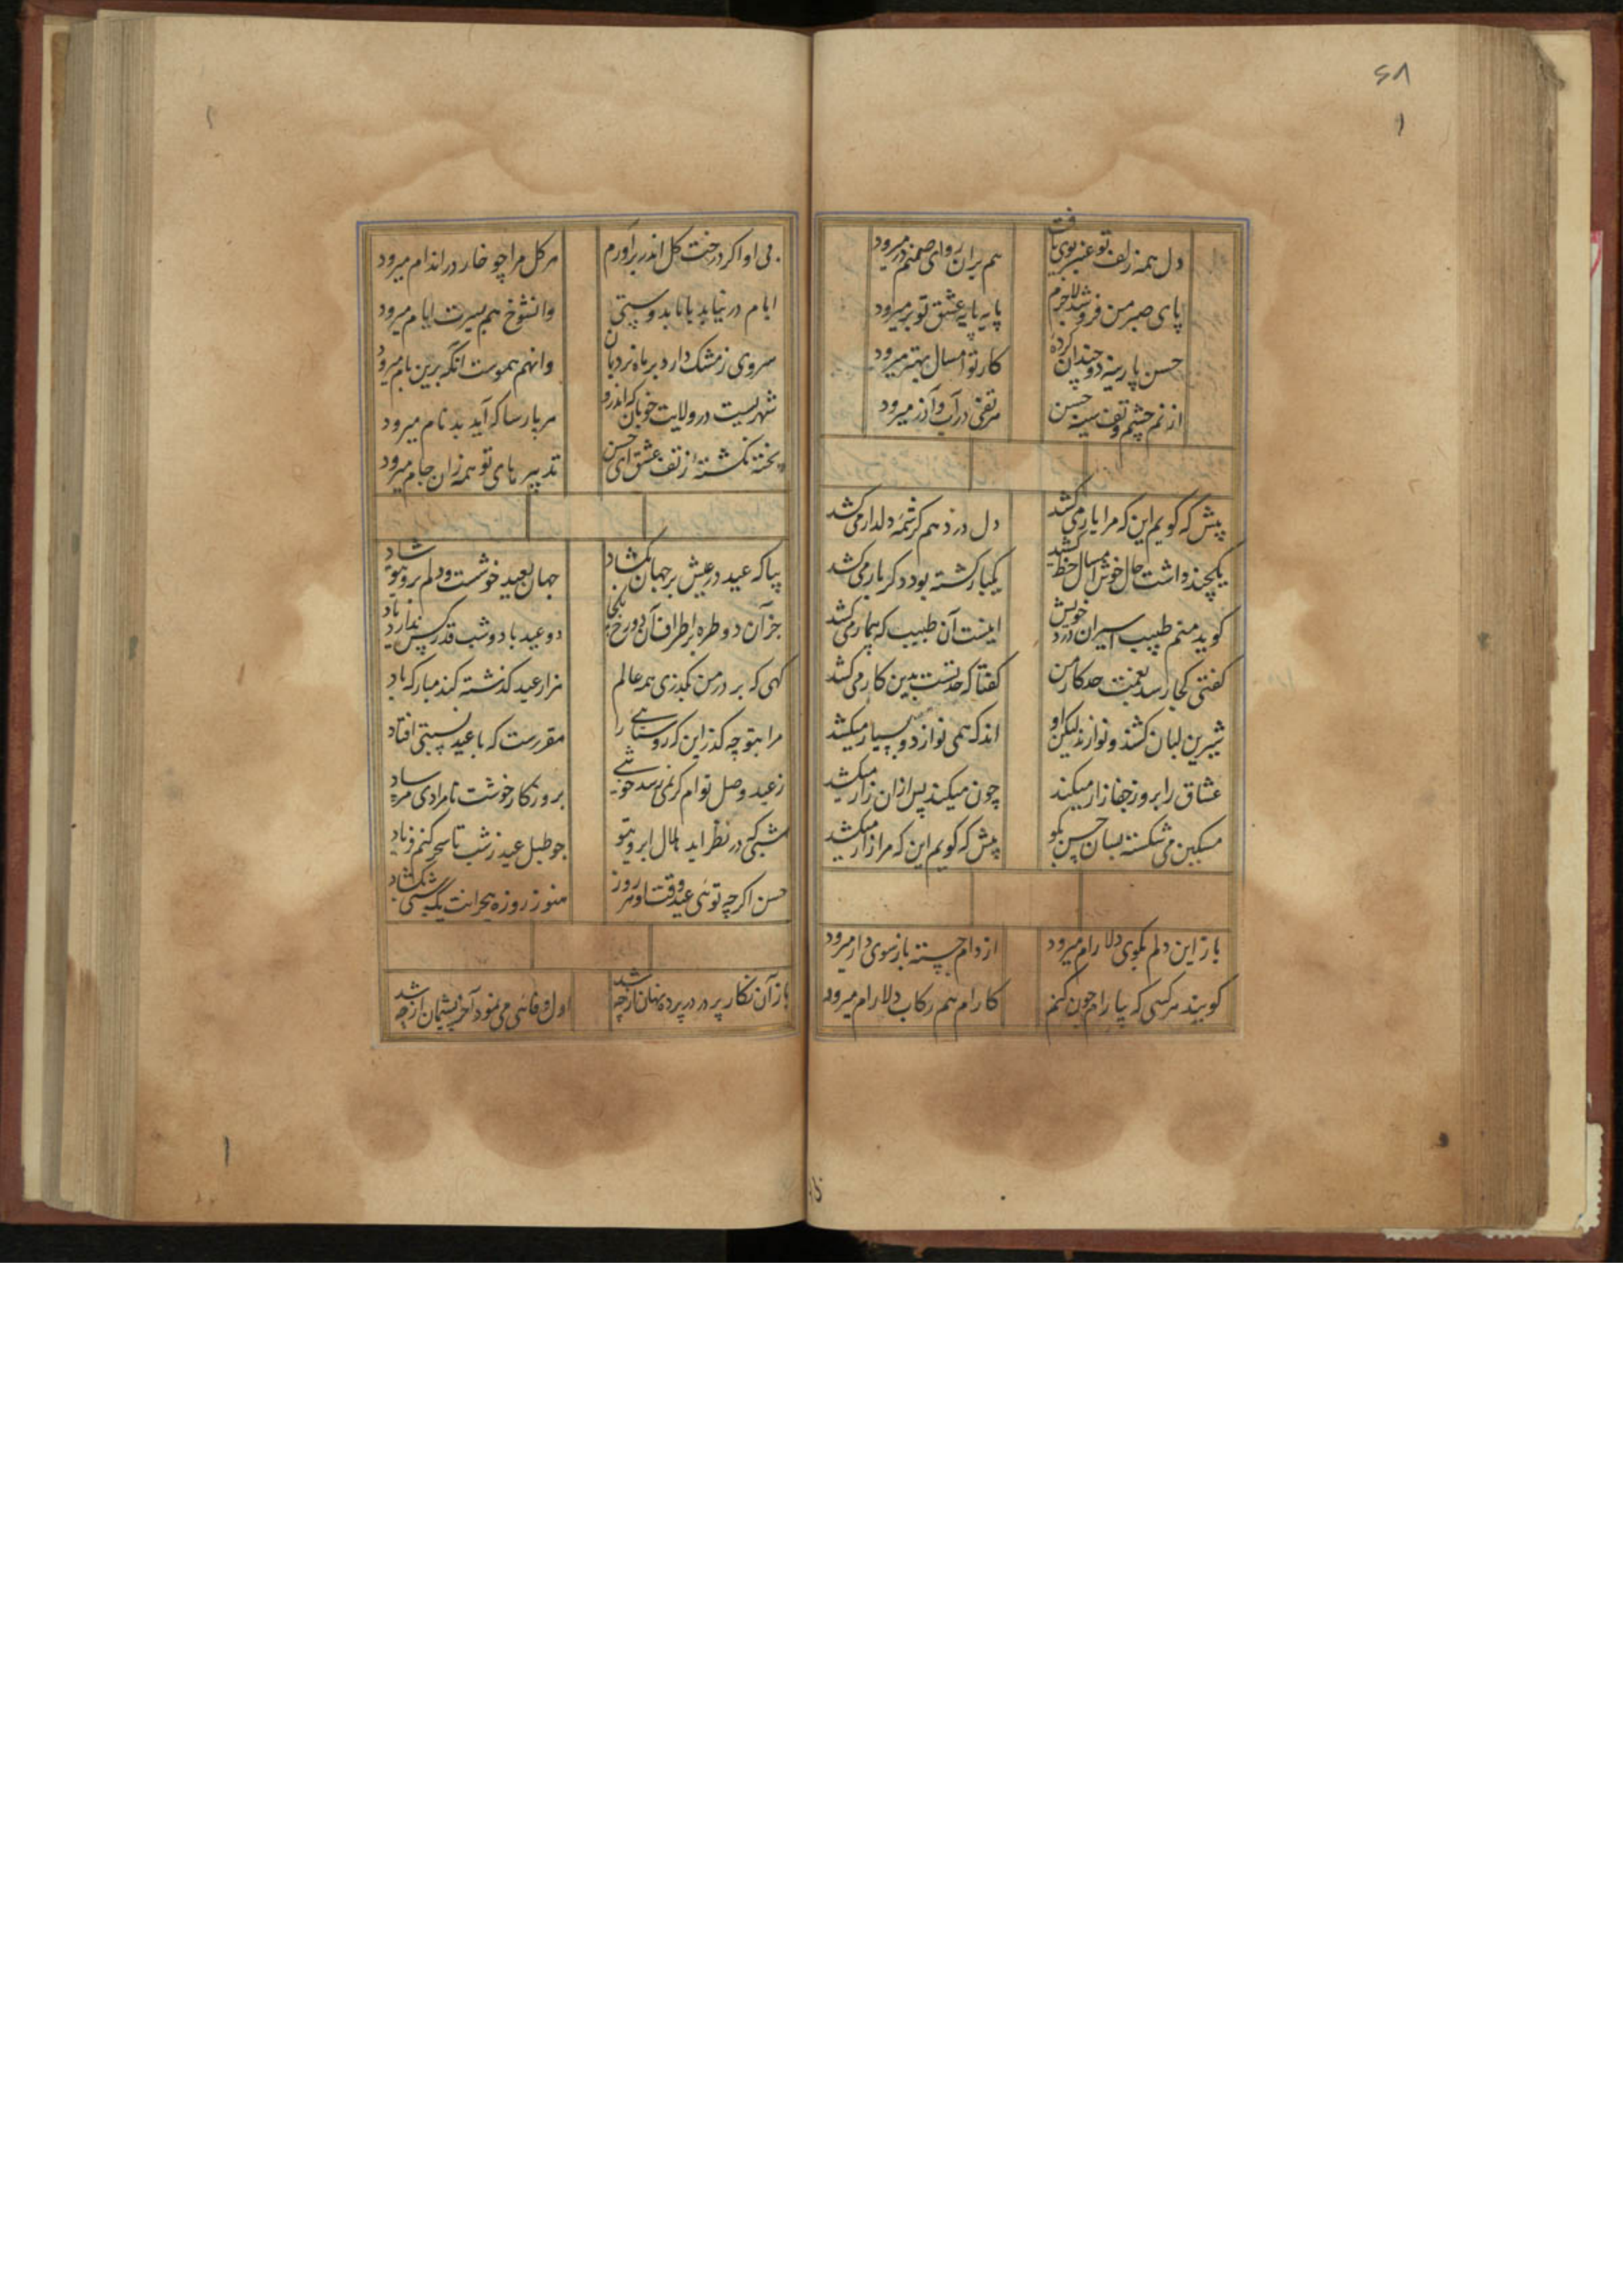 ۶۸
دل همه زلف تو عنبر بوی یافت
هم بران روای صنم درمیرود
پای صبر من فرو شد لاجرم
پایه پایه عشق تو برمیرود
حسن پارینه دو چندان کردهٔ
کار تو امسال بهتر میرود
از نم چشم و تف سینه حسن
در آب و آذر میرود
پیش که کویم این که مرا یار می کشد
دل دزدد هم کرشمه دلدار می کشد
یکچند داشت حال خوش امسال خط کشید
یکبار کشته بود دکر بار می کشد
کوید منم طبیب اسیران درد خویش
اینست آن طبیب که بیمار می کشد
کفتی کجا رسد بغمت حد کار من
کفتا که حد تست بدین کار می کشد
شیرین لبان کشند و نوازند لیکن او
اندک همی نوازد و بسیار میکشد
عشاق را بروز جفا زار میکند
چون میکند پس ازان زار میکشد
مسکین می شکسته بسان حسن بکو
پیش که کویم این که مرا زار میکشد
باز این دلم بکوی دلارام میرود
از دام جسته باز سوی دام میرود
کویند هر کسی که بیارام چون کنم
کارام هم رکاب دلارام میرود
بی او اکر درخت کل اندر برآورم
هر کل مرا چو خار در اندام میرود
ایام در نیاید با ما بدوستی
وانشوخ هم بسیرت ایام میرود
سروی ز مشک دارد بر ماه نردبان
وانهم هموست انکه برین بام میرود
شهریست در ولایت خوبان که اندرو
هر پارسا که آید بدنام میرود
پخته نکشتهٔ ز تف عشق ای حسن
تدبیرهای تو همه زان خام میرود
بیا که عید در عیش بر جهان بکشاد
جهان بعید خوشست و دلم بروی تو شاد
جز آن دو طره بر اطراف آن دو رخ یکجا
دو عید با دو شب قدر کس ندارد یاد
کهی که بر در من بکذری همه عالم
هزار عید کذشته کند مبارک باد
مرا بتو چه کذر این که روستائی را
مقررست که با عید نسبتی افتاد
ز عید وصل توام کر نمی رسد خوشیی
بروزکار خوشت نامرادی مرساد
شبی که در نظر آید هلال ابروی تو
چو طبل عید ز شب تا سحر کنم فریاد
حسن اکرچه توئی عید وقت او هر روز
هنوز روزه هجرانت یک شبی نکشاد
باز آن نکار پرده در در پرده پنهان از چه شد
اول وفائی می نمود آخر پشیمان از چه شد